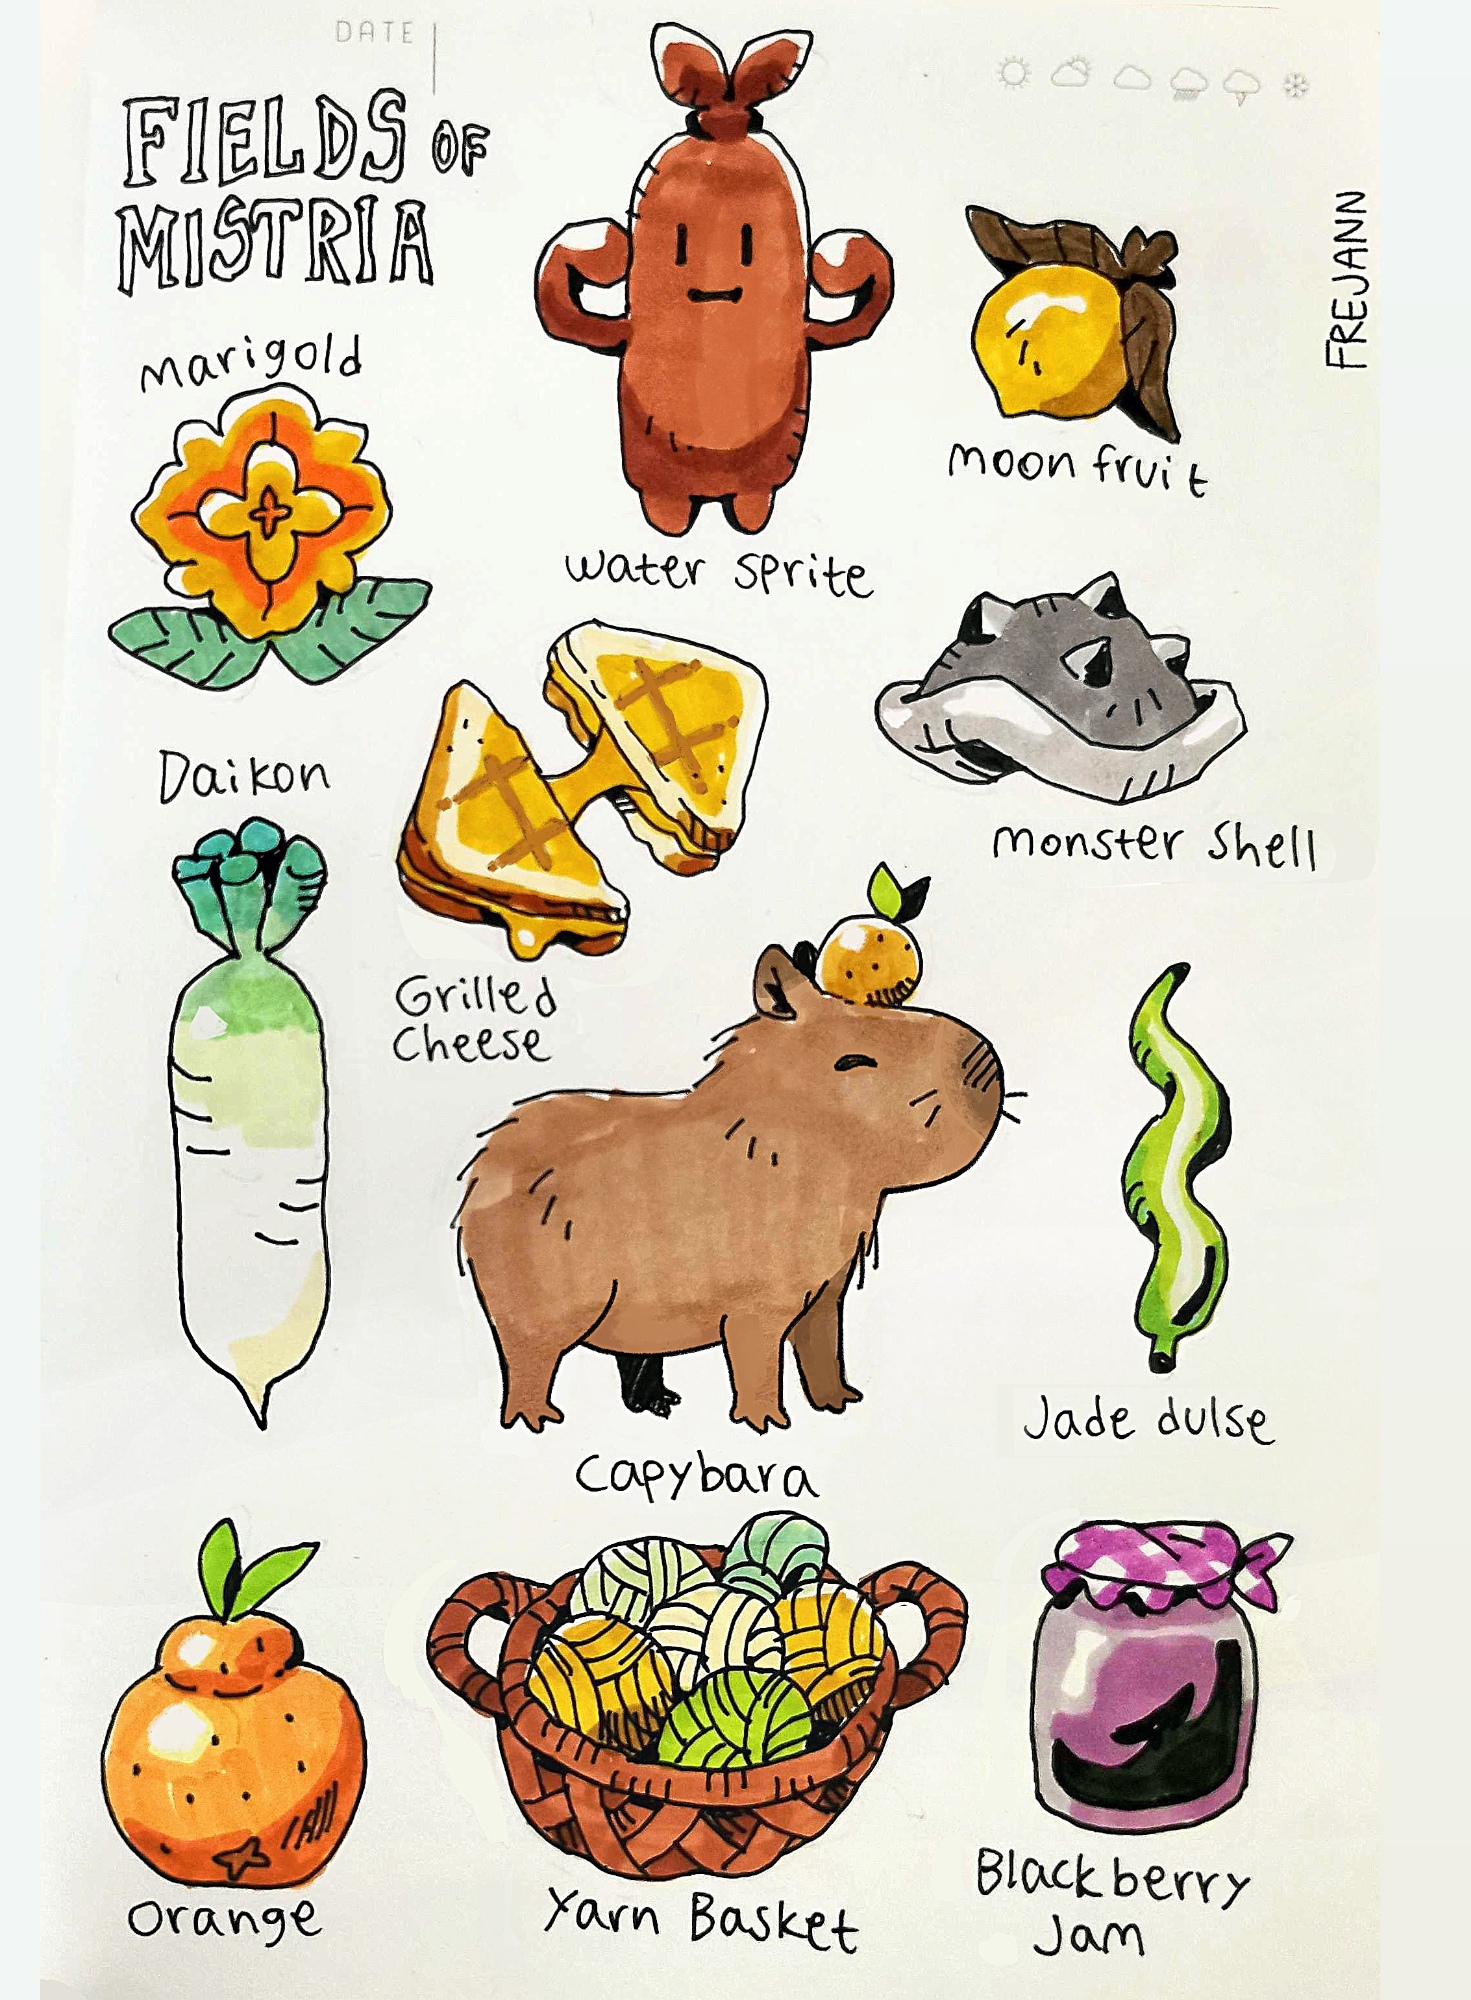 DATE
FIELDS OF
MISTRIA
FREJANN
marigold
water sprite
moon fruit
Daikon
monster shell
Grilled
Cheese
Jade dulse
Capybara
Orange
Yarn Basket
Blackberry
Jam